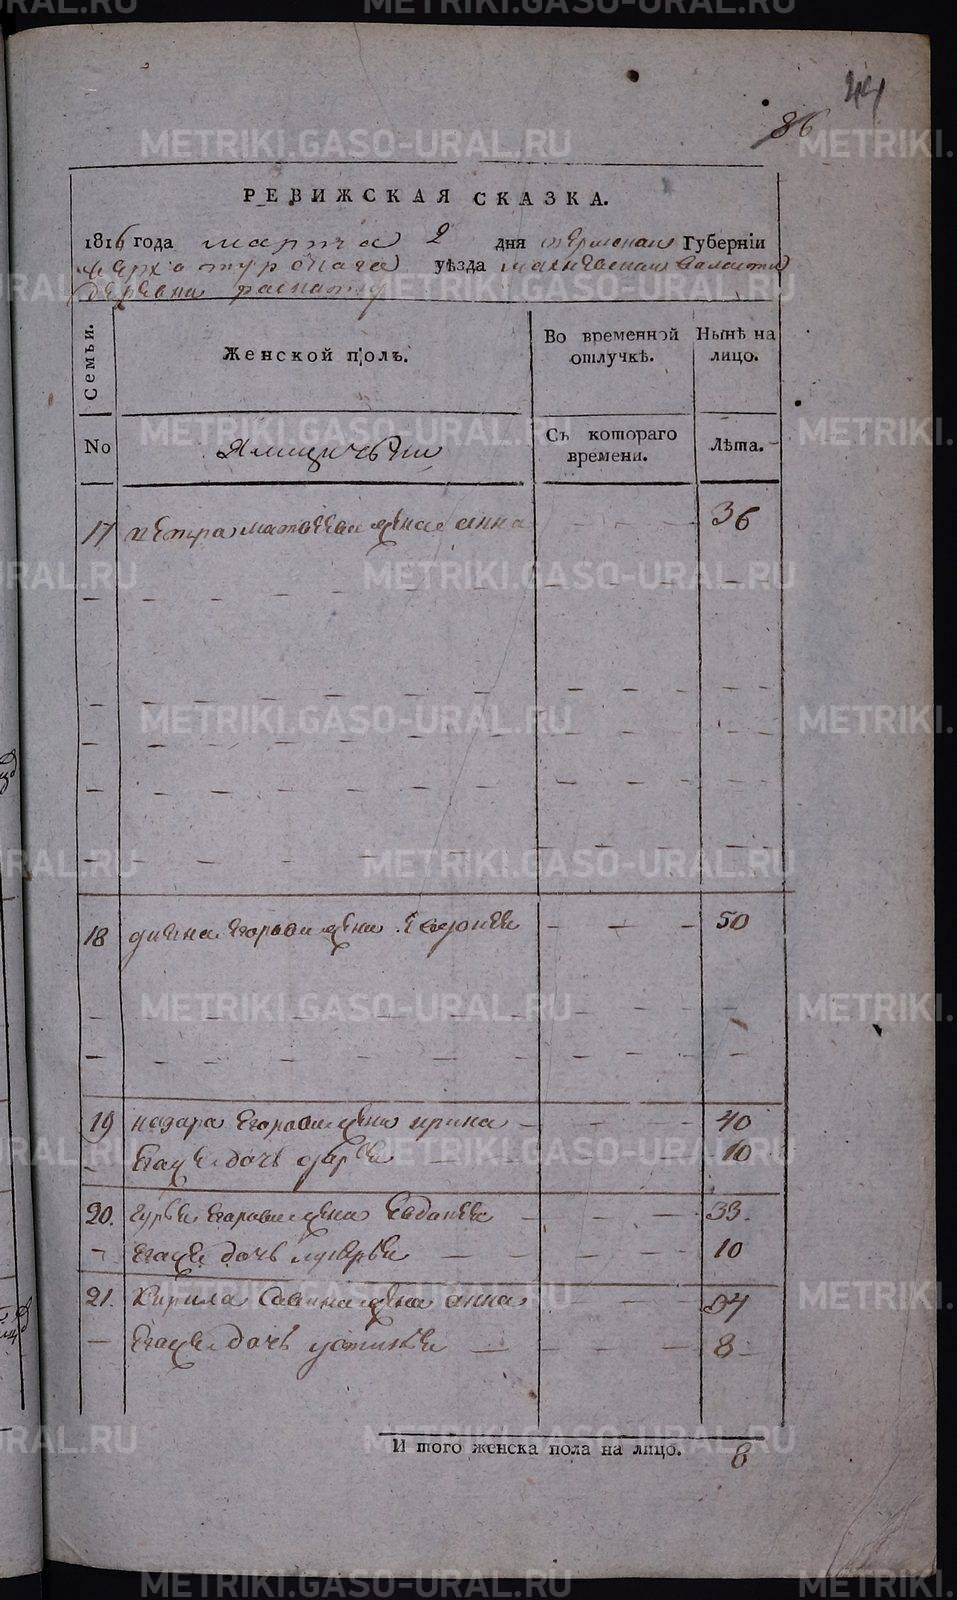 44
86
РЕВИЖСКАЯ СКАЗКА.
1816 года марта 2 дня пермской Губерніи
верхотурскага уѣзда махневской валости
деревни
Семьи.
Женской полъ.
Во временной отлучкѣ.
Нынѣ на лицо.
No
Съ котораго времени.
Лѣта.
17 петра матвеева жена анна 36
18 егорова жена 50
19 егорова жена ирина 40
егоже дочь 10
20. гурья егорова жена 33
егоже дочь лукерья 10
21. кирила савина жена анна
егоже дочь устинья 8
И того женска пола на лицо. 8
METRIKI.GASO-URAL.RU